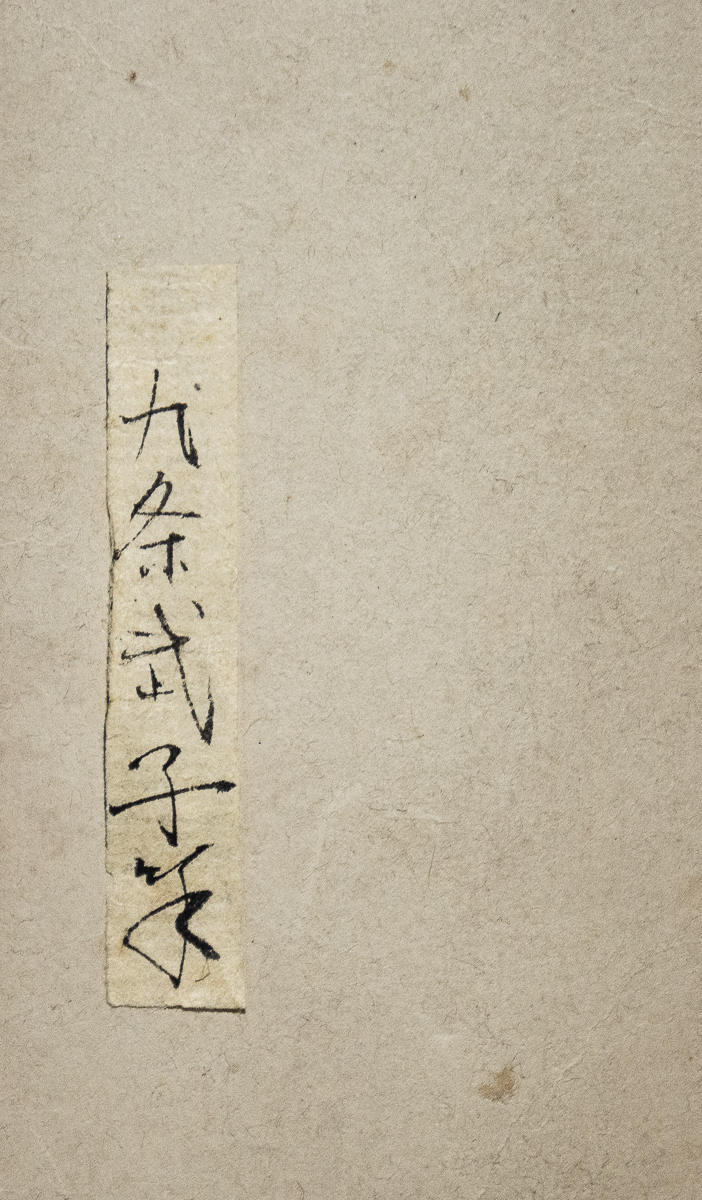 九条武子筆